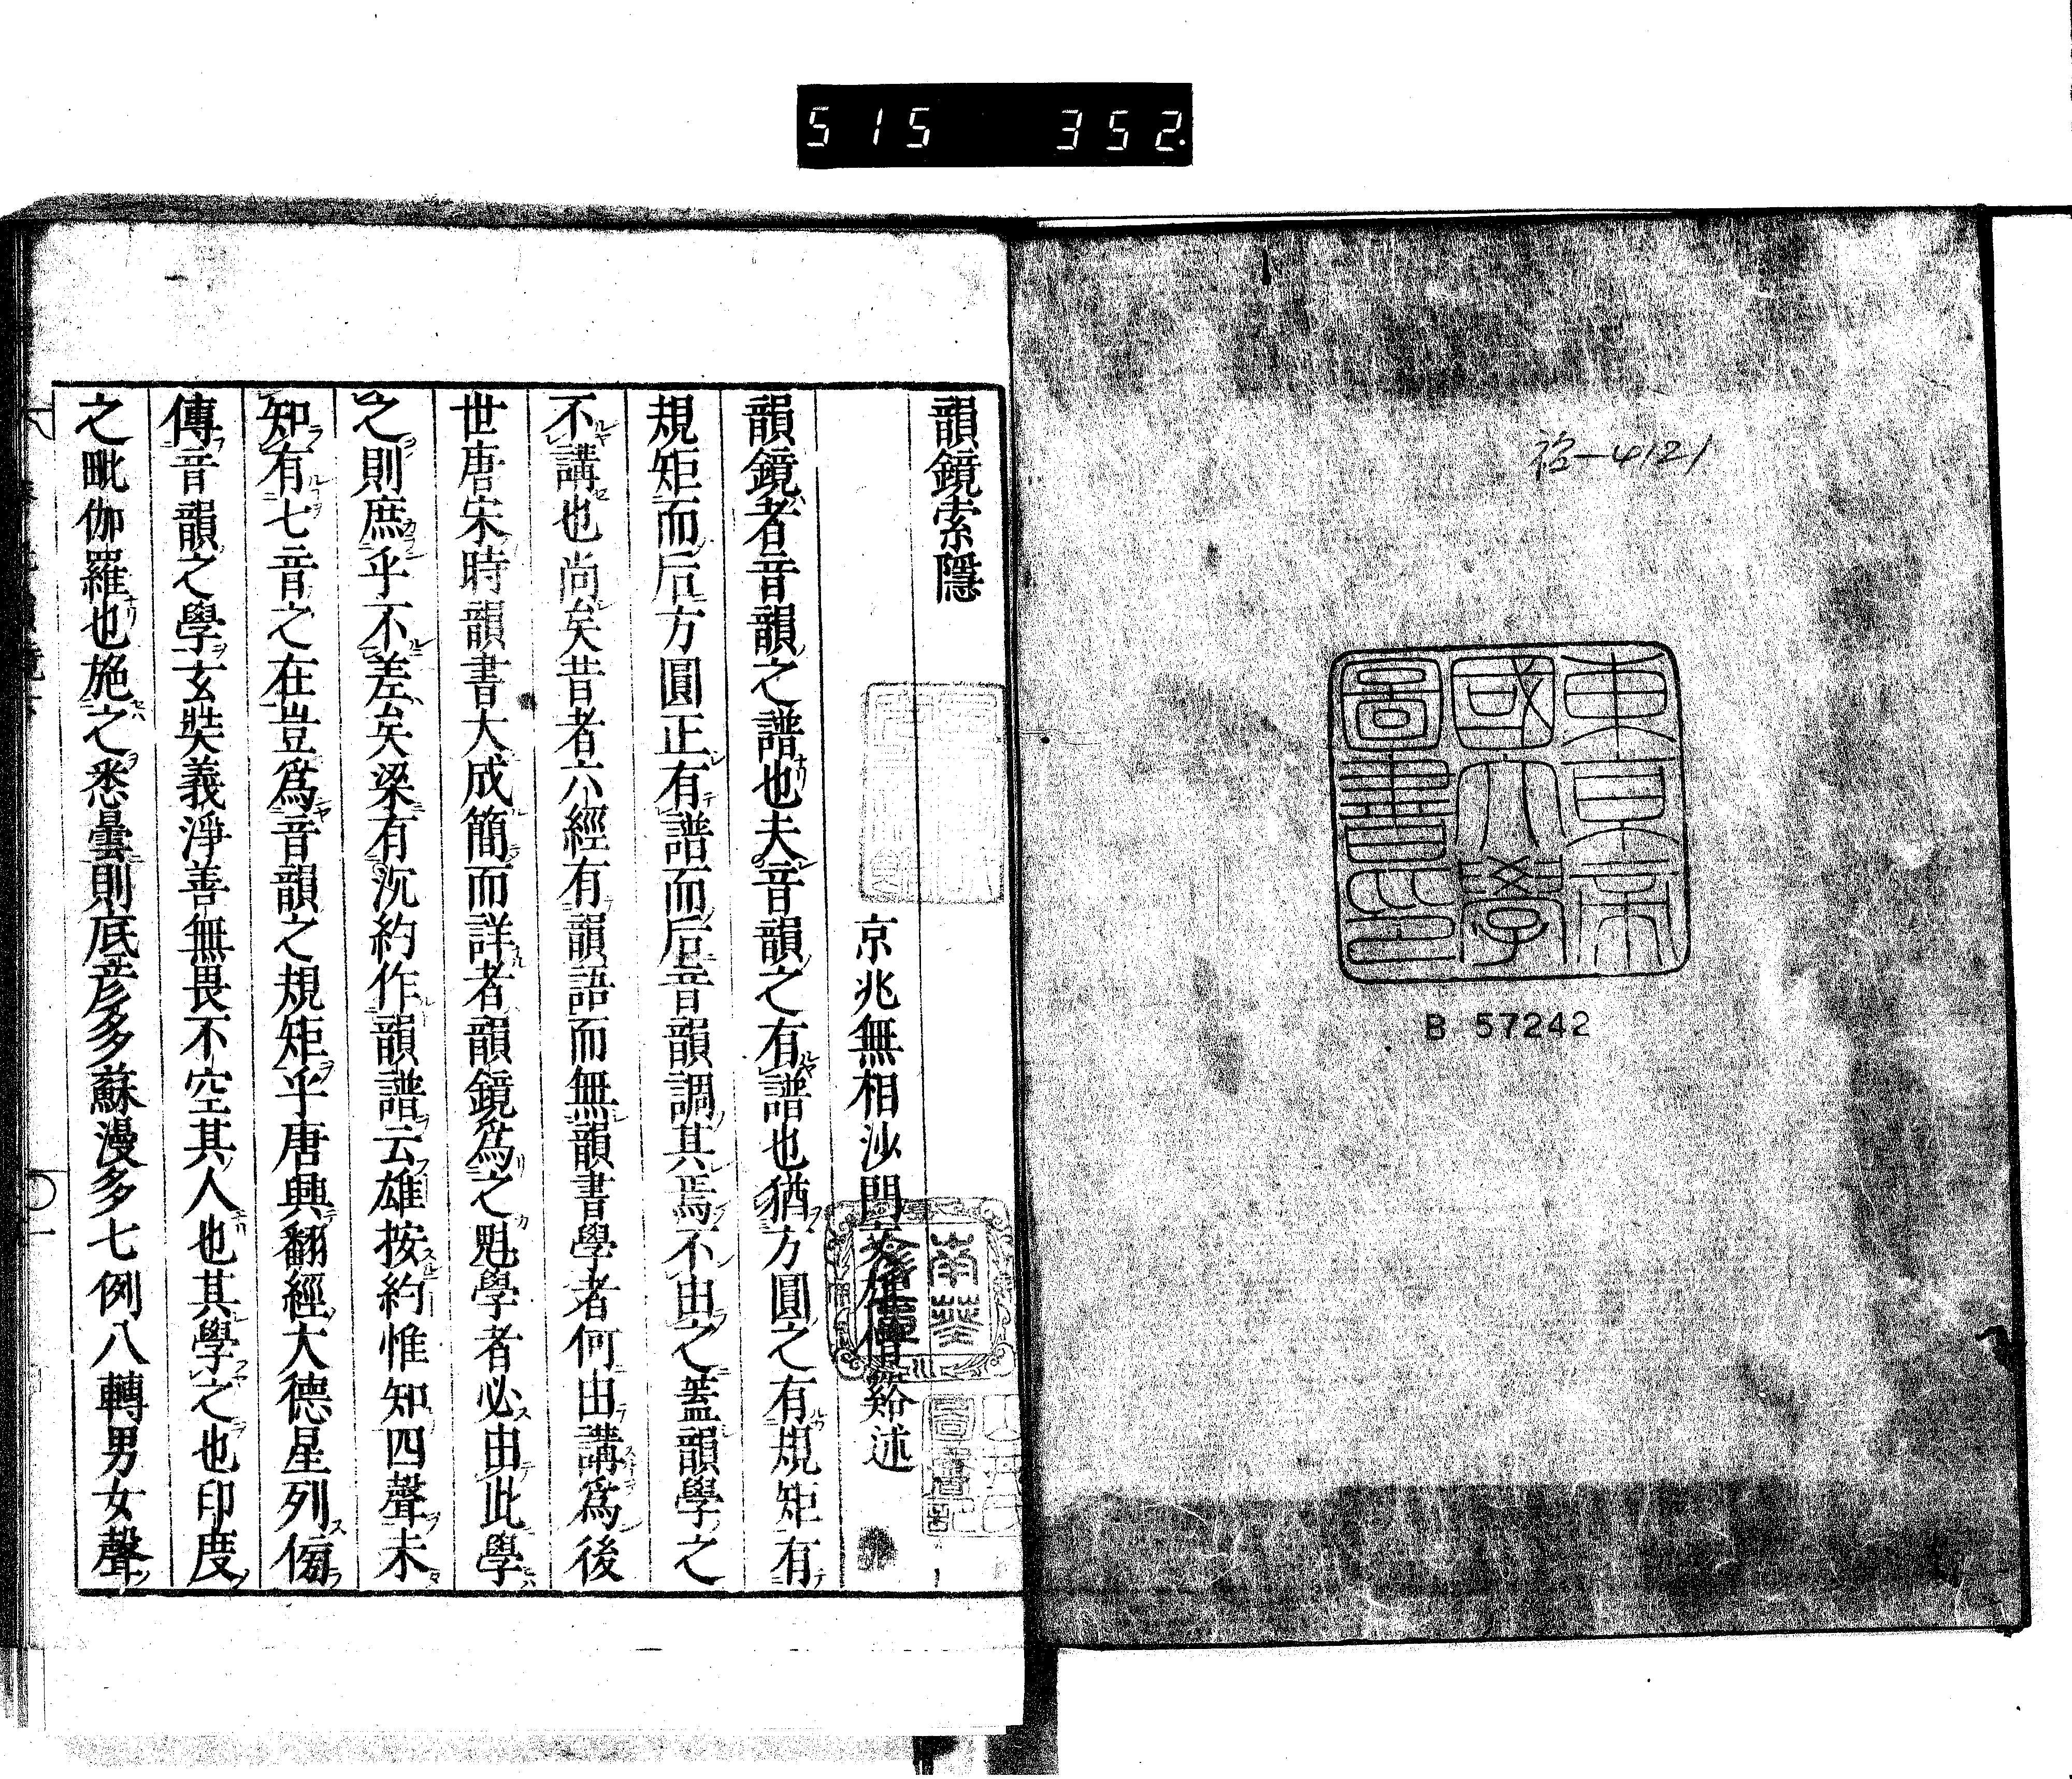 515 352.
袑-4121
東京帝
國大學
圖書印
B 57242
韻鏡索隱
京兆無相沙門文雄僧谿述
韻鏡者音韻之譜也夫音韻之有譜也猶方圓之有規矩有
規矩而后方圓正有譜而后音韻調其焉不由之蓋韻學之
不講也尚矣昔者六經有韻語而無韻書學者何由講爲後
世唐宋時韻書大成簡而詳者韻鏡爲之魁學者必由此學
之則庶乎不差矣梁有沈約作韻譜云雄按約惟知四聲未
知有七音之在豈爲音韻之規矩乎唐興翻經大德星列傍
傳音韻之學玄奘義淨善無畏不空其人也其學之也印度
之毗伽羅也施之悉曇則底彥多蘇漫多七例八轉男女聲